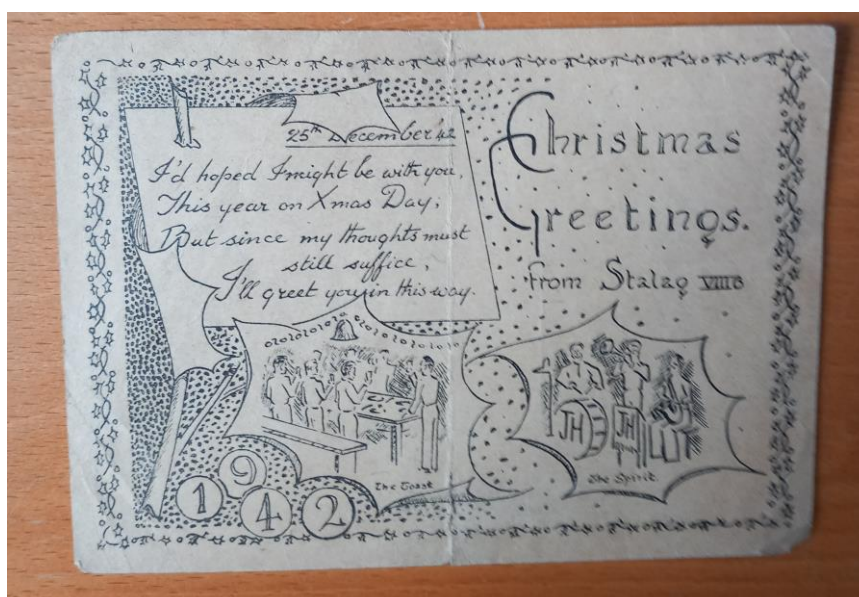 25th December 42
I'd hoped I might be with you,
This year on Xmas Day;
But since my thoughts must
still suffice,
I'll greet you in this way.
Christmas
Greetings.
from Stalag VIIIB
The Toast
JH
JH
The Spirit
1942